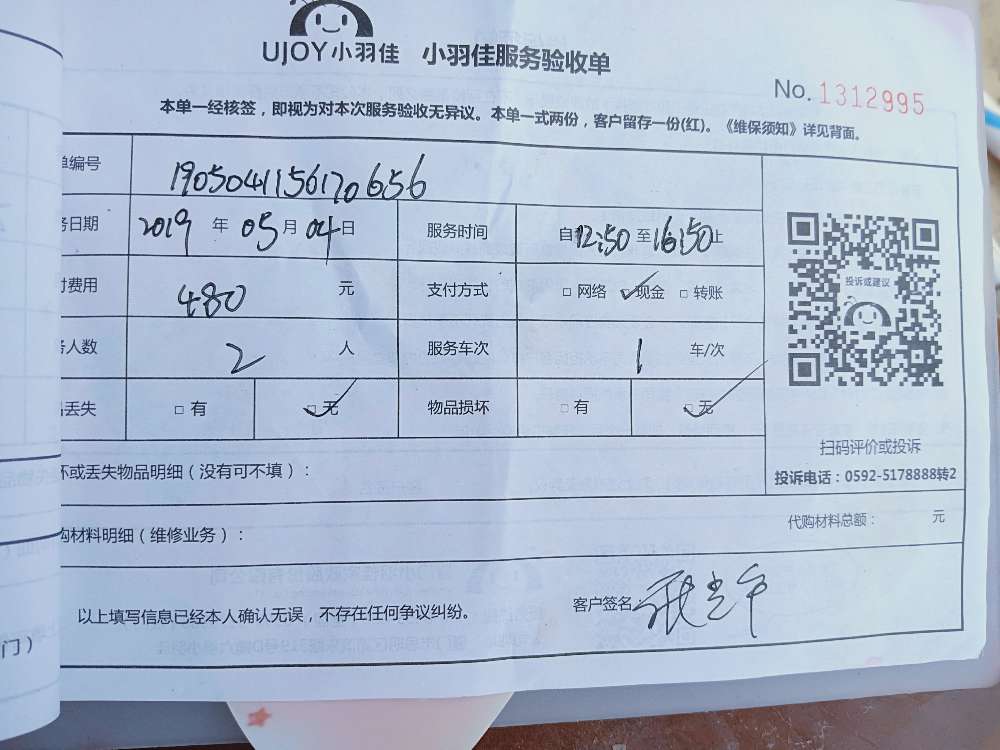 UJOY小羽佳 小羽佳服务验收单
No. 1312995
本单一经核签，即视为对本次服务验收无异议。本单一式两份，客户留存一份(红)。《维保须知》详见背面。
单编号 1905041156170656
务日期 2019 年 05 月 04 日 服务时间 自 12:50 至 16:50 止
付费用 480 元 支付方式 □ 网络 □ 现金 □ 转账
务人数 2 人 服务车次 1 车/次
品丢失 □ 有 □ 无 物品损坏 □ 有 □ 无
投诉或建议
扫码评价或投诉
投诉电话：0592-5178888转2
坏或丢失物品明细（没有可不填）：
购材料明细（维修业务）： 代购材料总额： 元
以上填写信息已经本人确认无误，不存在任何争议纠纷。 客户签名：
门）